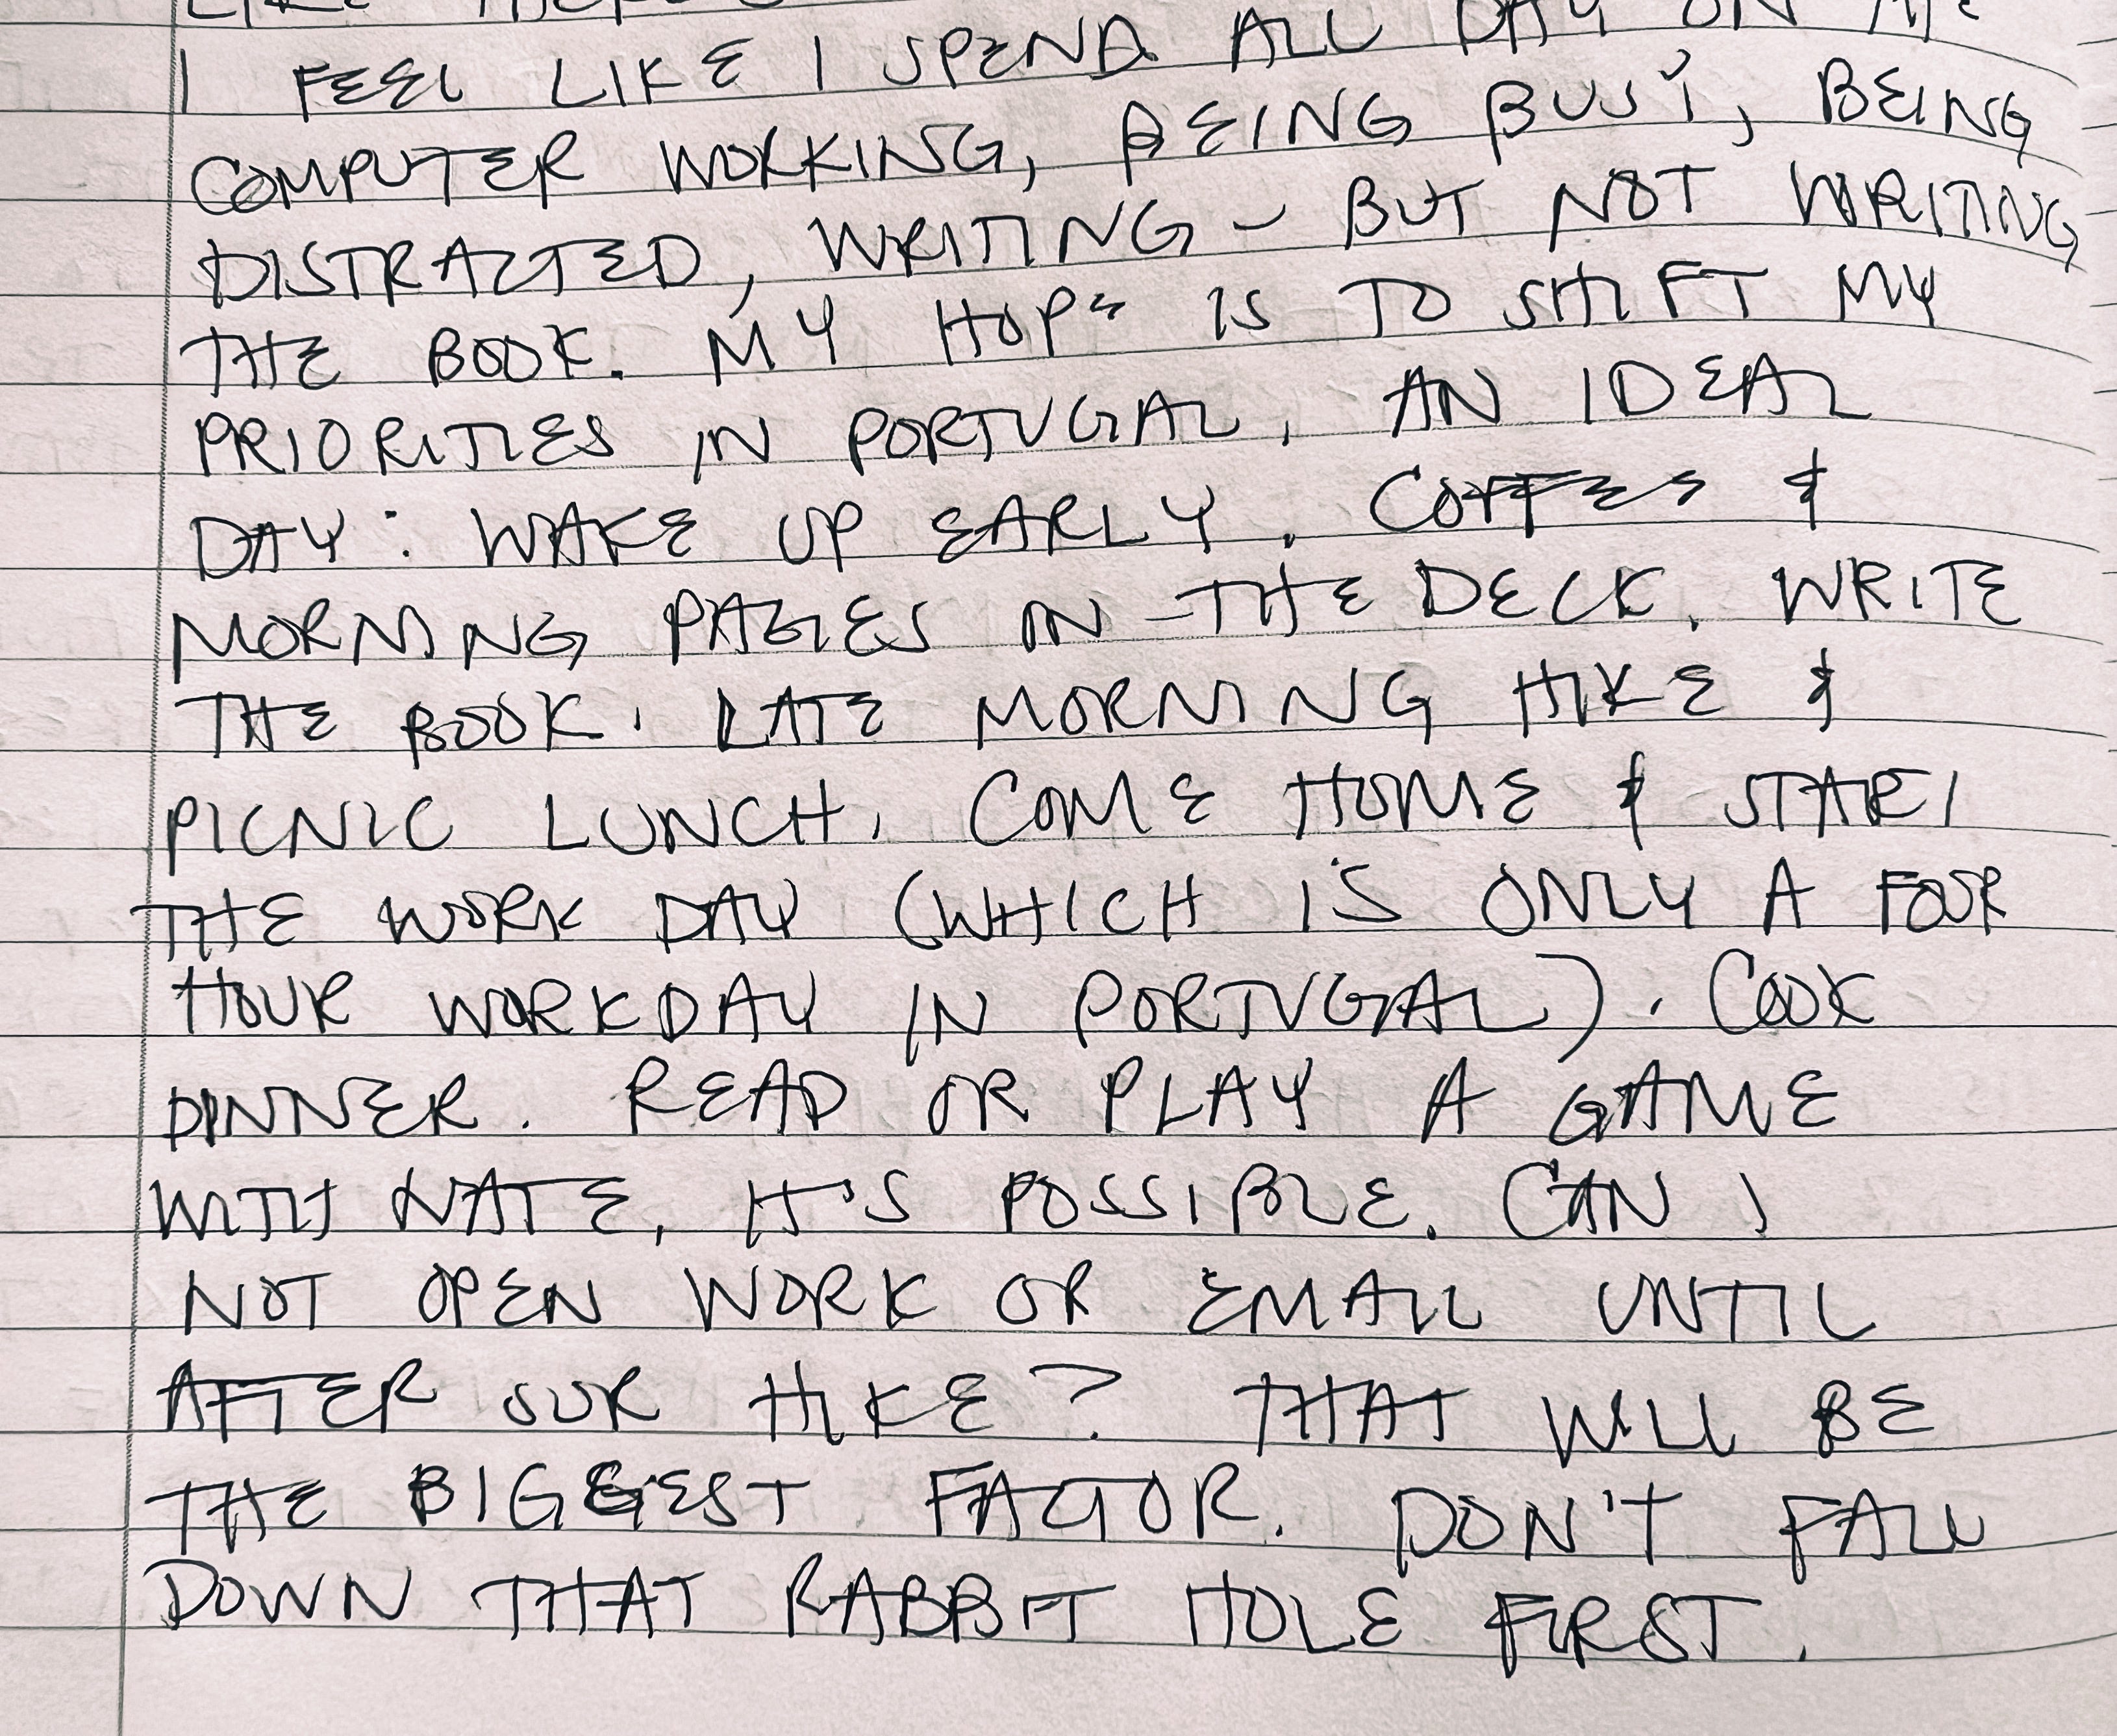 I FEEL LIKE I SPEND ALL DAY ON MY
COMPUTER WORKING, BEING BUSY, BEING
DISTRACTED, WRITING – BUT NOT WRITING
THE BOOK. MY HOPE IS TO SHIFT MY
PRIORITIES IN PORTUGAL. AN IDEAL
DAY: WAKE UP EARLY. COFFEE &
MORNING PAGES ON THE DECK. WRITE
THE BOOK. LATE MORNING HIKE &
PICNIC LUNCH. COME HOME & START
THE WORK DAY (WHICH IS ONLY A FOUR
HOUR WORKDAY IN PORTUGAL). COOK
DINNER. READ OR PLAY A GAME
WITH NATE. IT'S POSSIBLE. CAN I
NOT OPEN WORK OR EMAIL UNTIL
AFTER OUR HIKE? THAT WILL BE
THE BIGGEST FACTOR. DON'T FALL
DOWN THAT RABBIT HOLE FIRST.